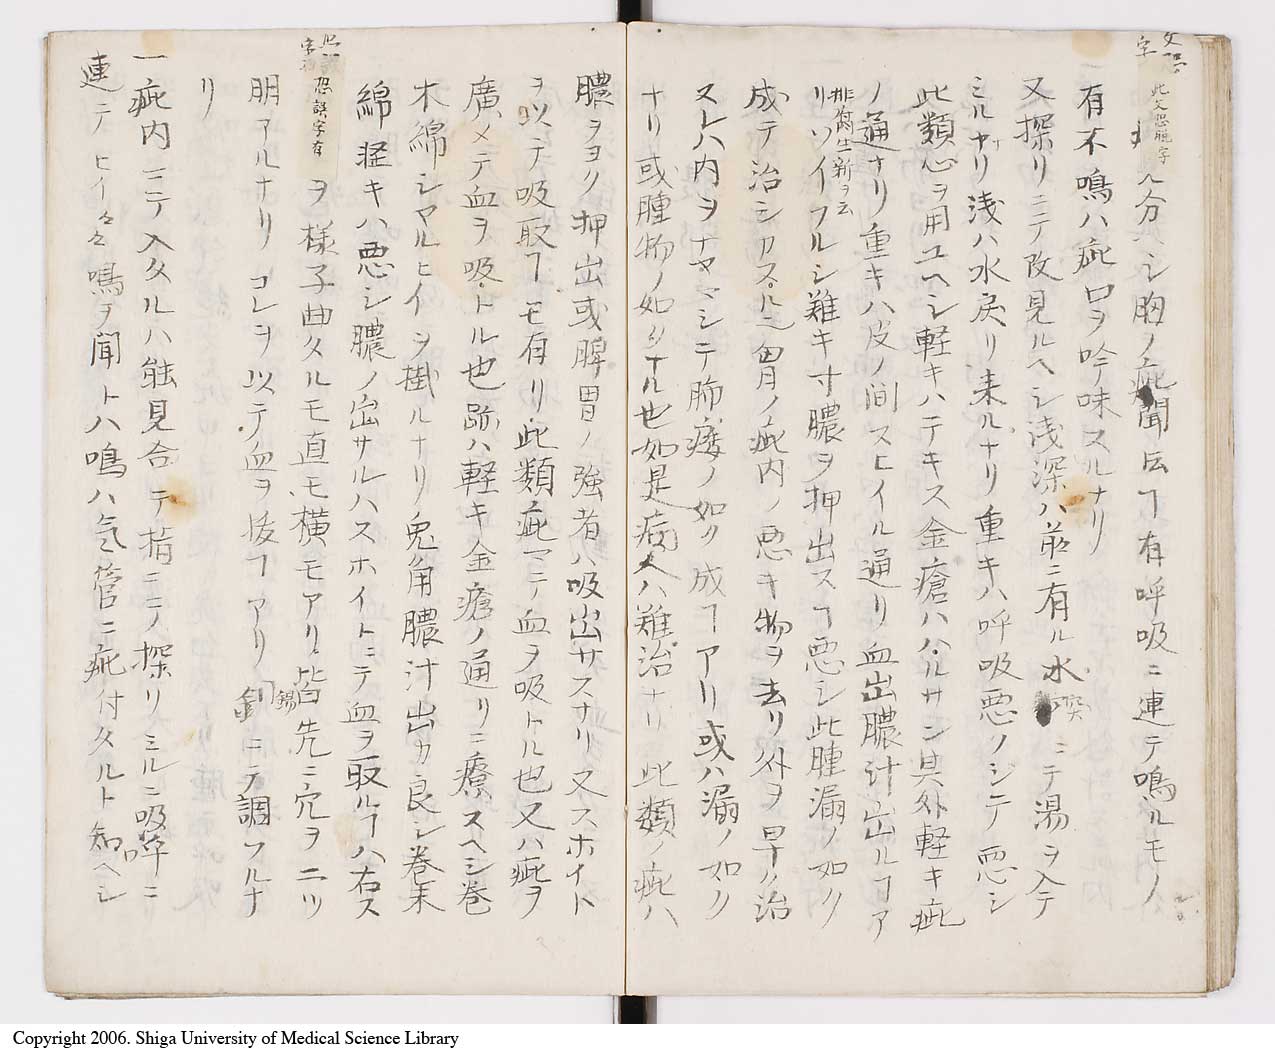 此文恐脱字
ヘ分ヘシ胸ノ疵聞伝ヿ有呼吸ニ連テ鳴ルモノ
有不鳴ハ疵口ヲ吟味スルナリ
又探リニテ改見ルヘシ浅深ハ前ニ有ル水突ニテ湯ヲ入テ
ミルナリ浅ハ水戻リ来ルナリ重キハ呼吸悪ノジテ悪シ
此類心ヲ用ユヘシ軽キハテキス金瘡ハハルサン其外軽キ疵
ノ通ナリ重キハ皮ノ間スヒイル通リ血出膿汁出ルヿア
リ排腐生新ヲ云ソイフルシ難キ寸膿ヲ押出スヿ悪シ此腫漏ノ如ク
成テ治シカヌル也胃ノ疵内ノ悪キ物ヲ去リ外ヲ早ク治
スレハ内ヲナヤマシテ肺痿ノ如ク成ヿアリ或ハ漏ノ如ク
ナリ或腫物ノ如クナル也如是病人ハ難治ナリ此類ノ疵ハ
膿ヲヨク押出或脾胃ノ強者ハ吸出サスナリ又スホイト
ヲ以テ吸取ヿモ有リ此類疵アテ血ヲ吸トル也又ハ疵ヲ
廣メテ血ヲ吸トル也跡ハ軽キ金瘡ノ通リニ療スヘシ巻
木綿シマルヒイヲ掛ルナリ兎角膿汁出カ良シ巻末
綿軽キハ悪シ膿ノ出サルハスホイトニテ血ヲ取ルヿハ右ス
恐誤字有
ヲ様子曲タルモ直モ横モアリ皆先ニ穴ヲ二ツ
明アルナリコレヲ以テ血ヲ抜ヿアリ釧錫ニテ調フルナ
リ
一疵内ニテ入タルハ能見合テ指ニテ探リミルニ吸呼ニ
連テヒイ々々鳴ヲ聞トハ鳴ハ气管ニ疵付タルト知ヘシ
Copyright 2006. Shiga University of Medical Science Library